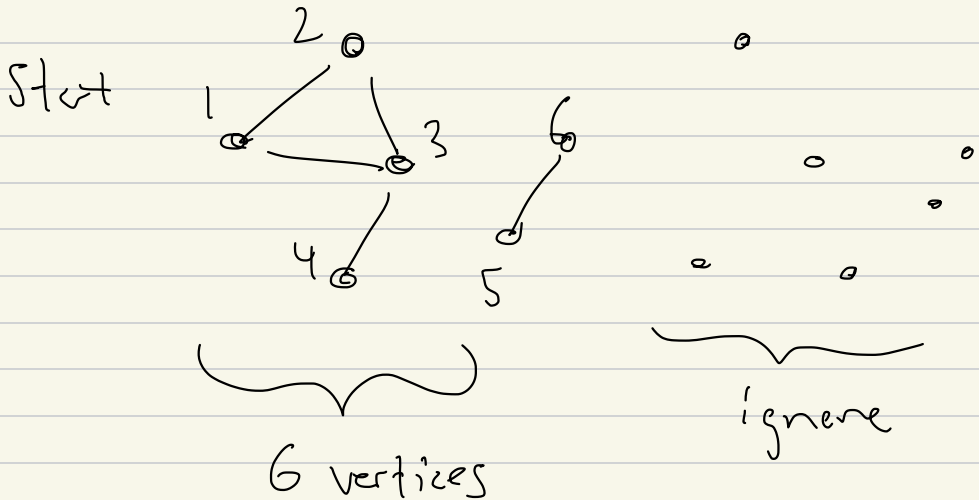 2
Start
1
3
6
4
5
6 vertices
ignore